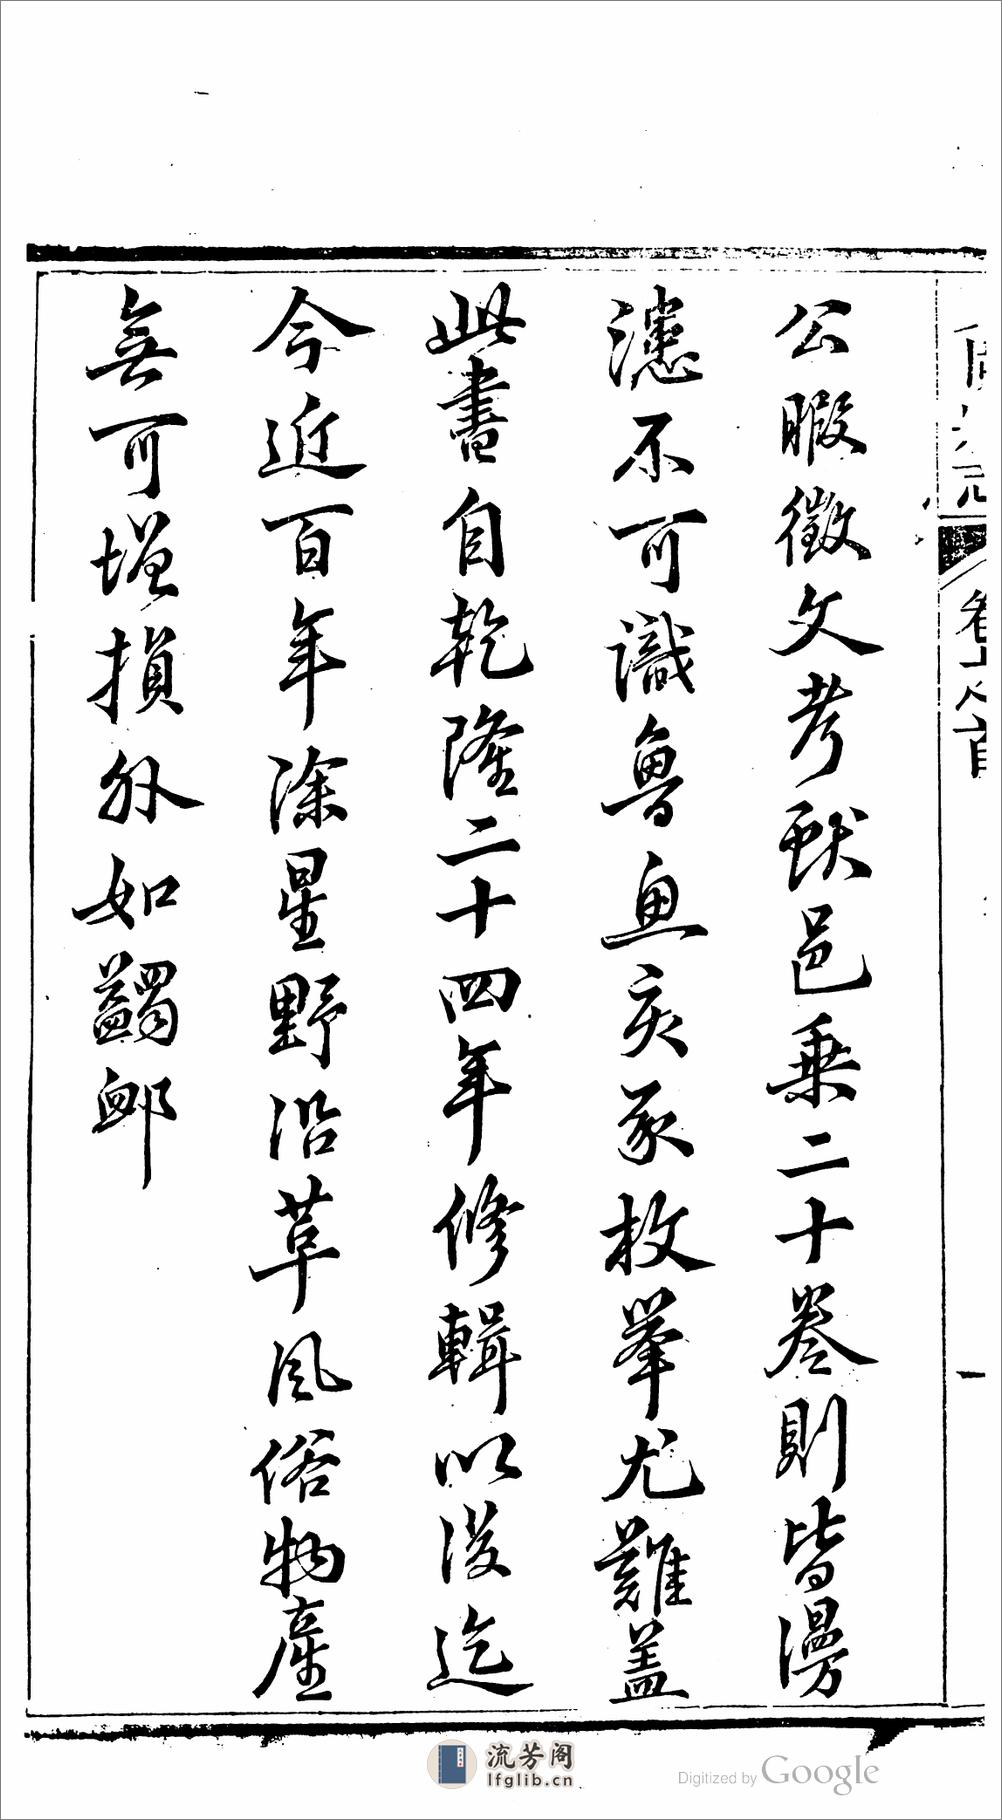 公暇徵文考獻邑乗二十卷則皆漫
漶不可識魯魚亥豕枚舉尤難盖
此書自乾隆二十四年修輯以後迄
今近百年深星野沿革風俗物產
無可增損外如蠲䘏
卷首
流芳阁
lfglib.cn
Digitized by Google